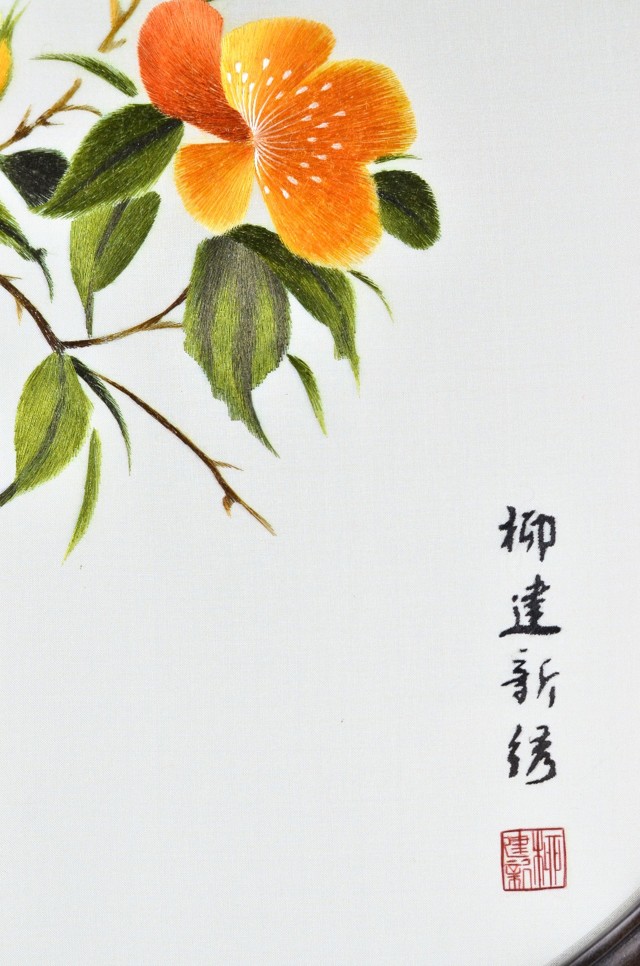 柳建新绣
柳建新